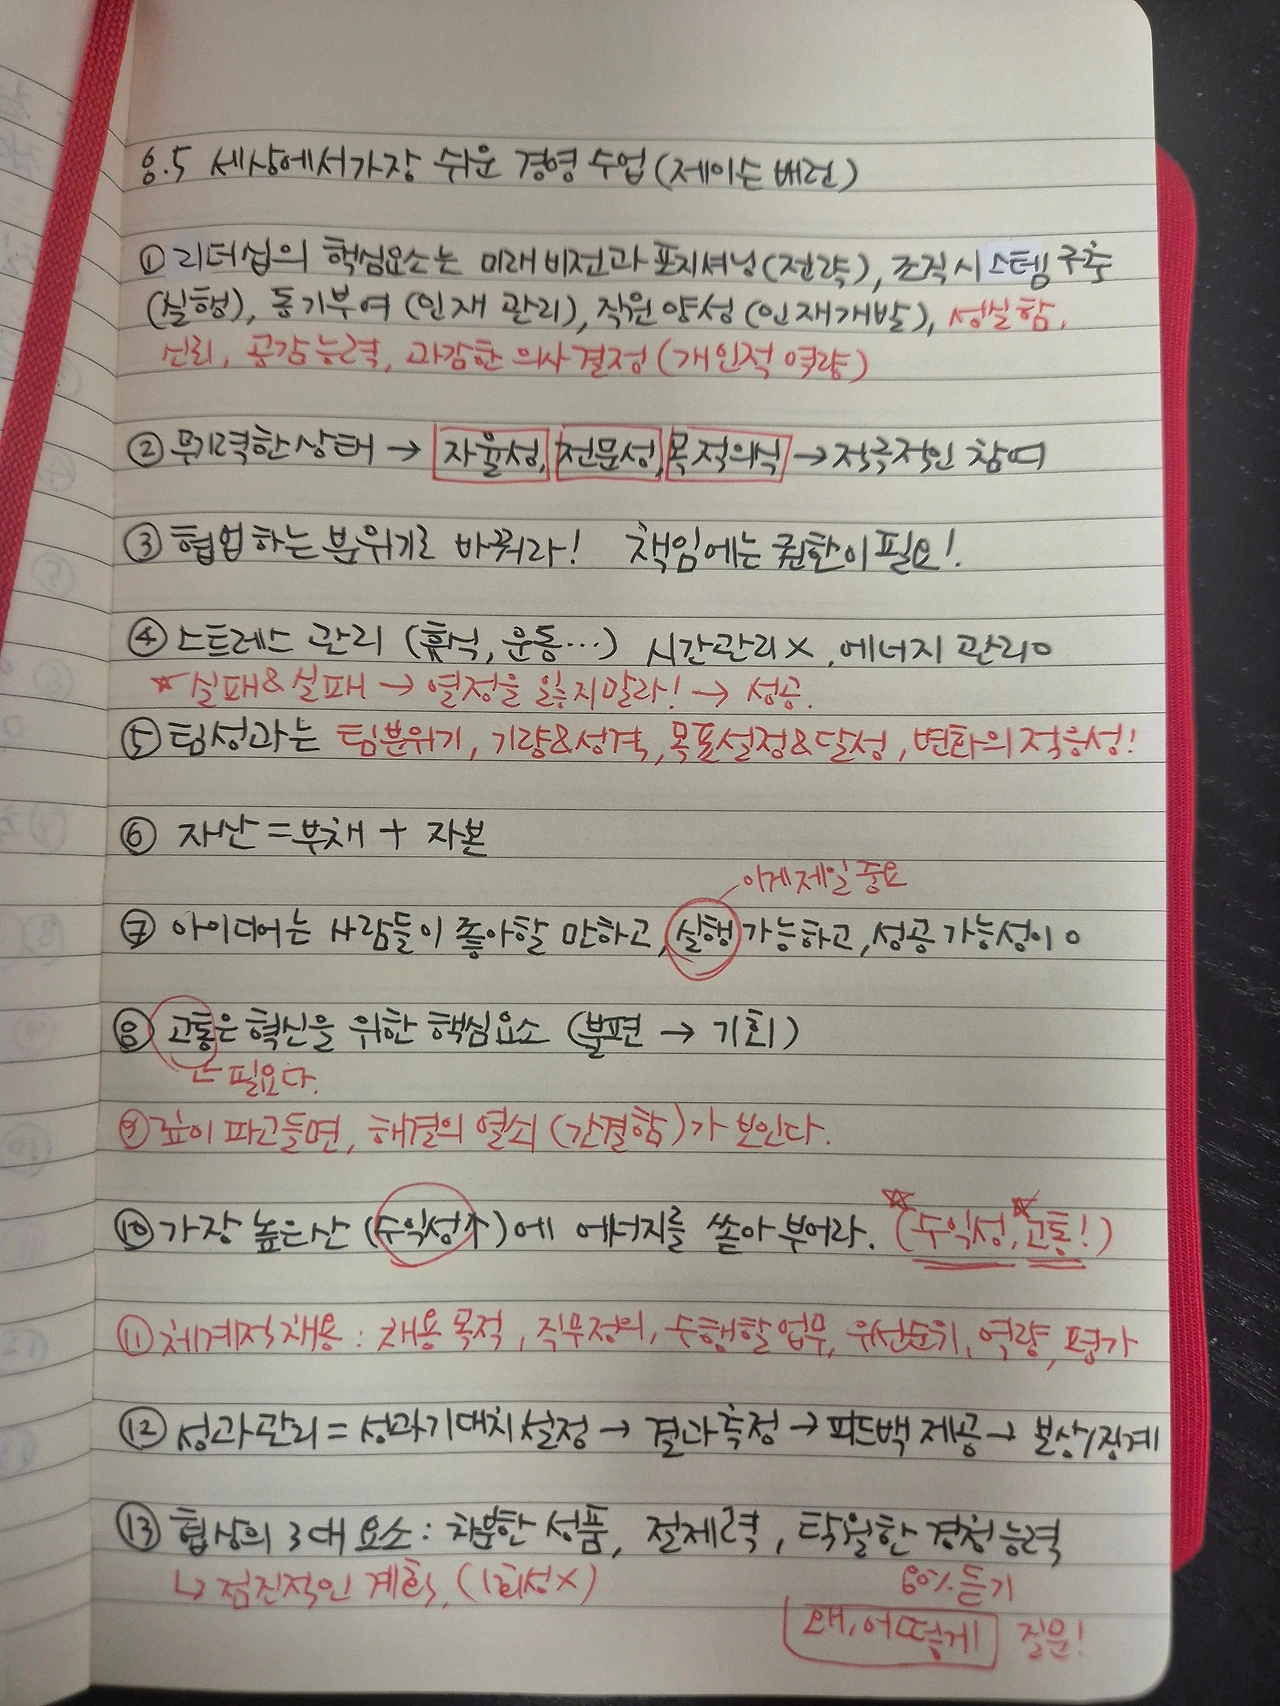 8.5 세상에서가장 쉬운 경영 수업(제이슨 배런)
① 리더십의 핵심요소는 미래비전과 포지셔닝(전략), 조직시스템 구축
(실행), 동기부여(인재 관리), 직원양성(인재개발), 성실함,
신뢰, 공감능력, 과감한 의사결정(개인적 역량)
② 무기력한상태 → 자율성, 전문성, 목적의식 → 적극적인 참여
③ 협업하는 분위기로 바꿔라! 책임에는 권한이 필요!
④ 스트레스 관리 (휴식, 운동…) 시간관리X, 에너지 관리O
☆ 실패&실패 → 열정을 잃지말라! → 성공.
⑤ 팀성과는 팀분위기, 기량&성격, 목표설정&달성, 변화의적응성!
⑥ 자산 = 부채 + 자본
이게제일 중요
⑦ 아이디어는 사람들이 좋아할 만하고, 실행 가능하고, 성공 가능성이 O
⑧ 고통은 혁신을 위한 핵심요소 (불편 → 기회)
필요다.
⑨ 깊이 파고들면, 해결의 열쇠 (간결함)가 보인다.
⑩ 가장 높은산 (수익성↑)에 에너지를 쏟아 부어라. ☆(수익성, ☆고통!)
⑪ 체계적채용 : 채용 목적, 직무정의, 수행할 업무, 우선순위, 역량, 평가
⑫ 성과관리 = 성과기대치설정 → 결과측정 → 피드백 제공 → 보상/징계
⑬ 협상의 3대 요소 : 차분한 성품, 절제력, 탁월한 경청능력
↳ 점진적인 계획, (1회성X) 80% 듣기
왜, 어떻게 질문!